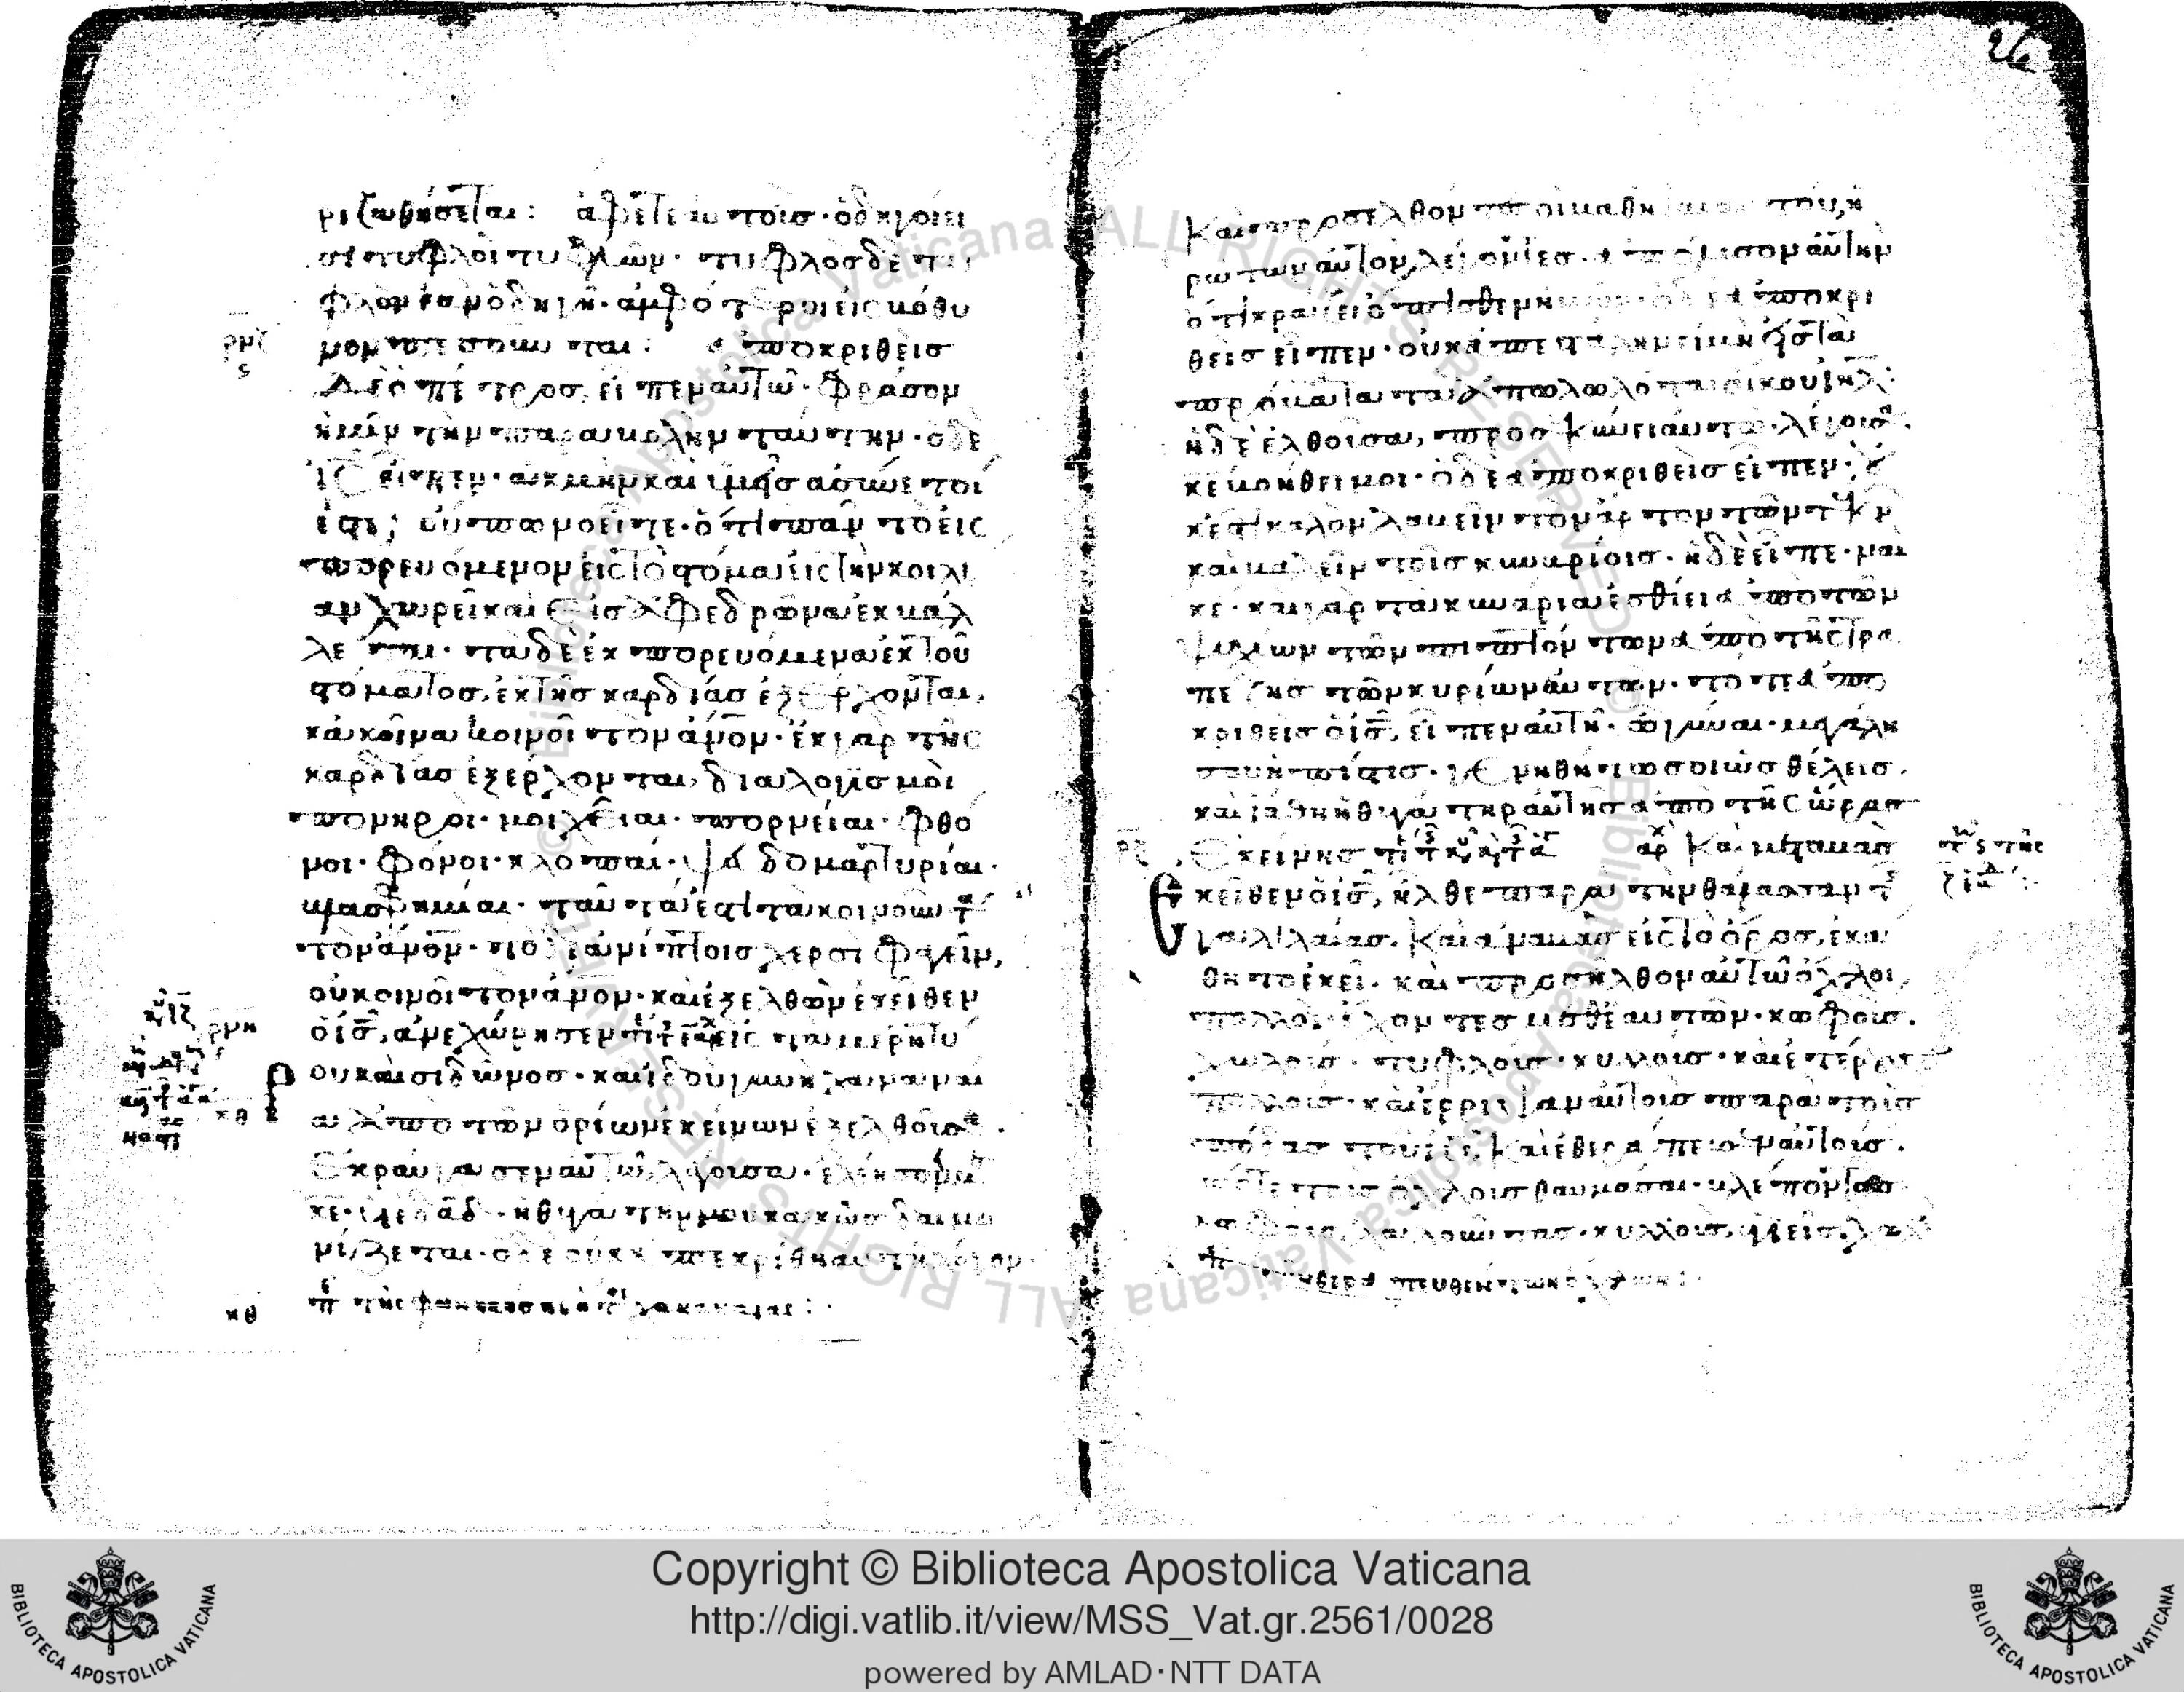 ριζωθήσεται: ἄφετε αὐτοίσ· ὁδηγοί εἰ
σι τυφλοὶ τυφλῶν· τυφλὸσ δὲ τυ
φλὸν ἐὰν ὁδηγῆ· ἀμφότεροι εἰς βόθυ
νον πεσοῦνται: ἀποκριθεὶσ
δὲ ὁ πέτροσ, εἶπεν αὐτῶ· φράσον
ἡμῖν τὴν παραβολὴν ταύτην· ὁ δὲ
ι̅ς̅ εἶπεν· ἀκμὴν καὶ ὑμεῖσ ἀσύνετοί
ἐστε; οὔπω νοεῖτε· ὅτι πᾶν τὸ εἰς
πορευόμενον εἰς τὸ στόμα, εἰς τὴν κοιλί
αν χωρεῖ καὶ εἰσ ἀφεδρῶνα ἐκβάλ
λεται· τὰ δὲ ἐκπορευόμενα ἐκ τοῦ
στόματοσ, ἐκ τῆσ καρδίασ ἐξέρχονται,
κἀκεῖνα κοινοῖ τὸν α̅ν̅ο̅ν̅· ἐκ γὰρ τῆς
καρδίασ ἐξέρχονται, διαλογισμοὶ
πονηροι· μοιχεῖαι· πορνεῖαι· φθό
νοι· φόνοι· κλοπαί· ψευδομαρτυρίαι·
βλασφημίαι· ταῦτά ἐστι τὰ κοινοῦντα
τὸν α̅ν̅ο̅ν̅· τὸ δὲ ἀνίπτοισ χερσὶ φαγεῖν,
οὐ κοινοῖ τὸν α̅ν̅ο̅ν̅· καὶ ἐξελθὼν ἐκεῖθεν
ὁ ι̅ς̅, ἀνεχώρησεν εἰς τὰ μέρη τύ
ρου καὶ σιδῶνοσ· καὶ ἰδοὺ γυνὴ χαναναί
α ἀπὸ τῶν ὁρίων ἐκείνων ἐξελθοῦσα·
ἐκραύγασεν αὐτῶ, λέγουσα· ἐλέησόν με
κ̅ε̅· υἱὲ δ̅α̅δ̅· ἡ θυγάτηρ μου κακῶσ δαιμο
νίζεται· ὁ δὲ οὐκ ἀπεκρίθη αὐτῆ λόγον·
ρμζ
ς
ρμη
κθ
κθ
26
Καὶ προσελθόντεσ οἱ μαθηταὶ αὐτοῦ, ἠ
ρώτων αὐτὸν, λέγοντες· ἀπόλυσον αὐτὴν
ὅτι κράζει ὄπισθεν ἡμῶν· ὁ δὲ ἀποκρι
θεὶσ εἶπεν· οὐκ ἀπεστάλην εἰ μὴ εἰς τὰ
πρόβατα τὰ ἀπολωλότα οἴκου ι̅η̅λ̅·
ἡ δὲ ἐλθοῦσα, προσεκύνει αὐτῶ· λέγουσα·
κ̅ε̅ βοήθει μοι· ὁ δὲ ἀποκριθεὶσ εἶπεν· οὐ
κ ἔστι καλὸν λαβεῖν τὸν ἄρτον τῶν τέκνων
καὶ βαλεῖν τοῖσ κυναρίοισ· ἡ δὲ εἶπε· ναὶ
κ̅ε̅· καὶ γὰρ τὰ κυνάρια ἐσθίει ἀπὸ τῶν
ψιχίων τῶν πιπτόντων ἀπὸ τῆς τρα
πέζησ τῶν κυρίων αὐτῶν· τότε ἀπο
κριθεὶσ ὁ ι̅ς̅, εἶπεν αὐτῆ· ὦ γύναι· μεγάλη
σου ἡ πίστισ· γενηθήτω σοι ὡσ θέλεισ.
καὶ ἰάθη ἡ θυγάτηρ αὐτῆσ ἀπὸ τῆς ὥρασ
ἐκείνησ Καὶ μεταβὰσ
ἐκεῖθεν ὁ ι̅ς̅, ἦλθε παρὰ τὴν θάλασσαν τῆς
γαλιλαίασ. καὶ ἀναβὰσ εἰς τὸ ὄροσ, ἐκά
θητο ἐκεῖ. καὶ προσῆλθον αὐτῶ ὄχλοι
πολλοὶ ἔχοντεσ μεθ' ἑαυτῶν· κωφούσ.
χωλούσ· τυφλούσ· κυλλούσ· καὶ ἑτέρουσ
πολλούσ· καὶ ἔρριψαν αὐτοὺσ παρὰ τοὺσ
πόδασ τοῦ ι̅υ̅, καὶ ἐθεράπευσεν αὐτούσ.
ὥστε τοὺσ ὄχλουσ θαυμάσαι· βλέποντασ
κωφοὺσ, λαλοῦντασ· κυλλοὺσ, ὑγιεῖσ,
Copyright © Biblioteca Apostolica Vaticana
http://digi.vatlib.it/view/MSS_Vat.gr.2561/0028
powered by AMLAD·NTT DATA
BIBLIOTECA APOSTOLICA VATICANA
BIBLIOTECA APOSTOLICA VATICANA